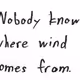 Nobody know
where wind
omes from.